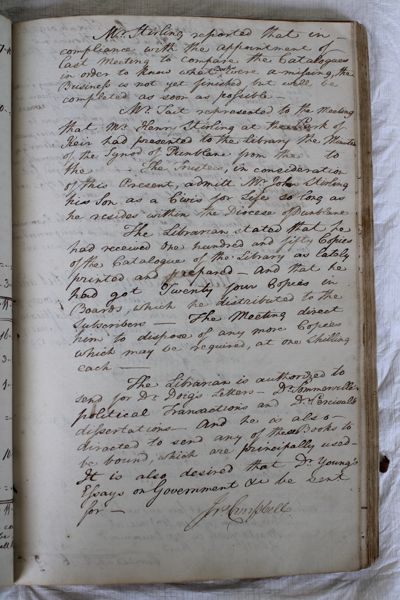 Mr. Stirling reported that in
compliance with the appointment of
last Meeting to compare the Catalogues
in order to know what Books were a missing, the
Business is not yet finished but will be
completed as soon as possible —
Mr. Tait represented to the Meeting
that Mr. Henry Stirling at the Park of
Keir had presented to the Library the Minutes
of the Synod of Dunblane from the to
the The Trustees, in consideration
of this Present, admit Mr. John Stirling
his Son as a Civis for Life so long as
he resides within the Diocese of Dunblane
The Librarian stated that he
had received One hundred and fifty Copies
of the Catalogue of the Library as lately
printed and prepared — And that he
had got Twenty four Copies in
Boards, which he distributed to the
Subscribers — The Meeting direct
him to dispose of any more Copies
which may be required, at one Shilling
each —
The Librarian is authorized to
send for Dr. Doig's Letters — Dr. Sommerville's
political Transactions and Dr. Percivals
dissertations — And he is also
directed to send any of the Books to
be bound, which are principally used —
It is also desired that Dr. Young's
Essays on Government &c be sent
for —
Campbell